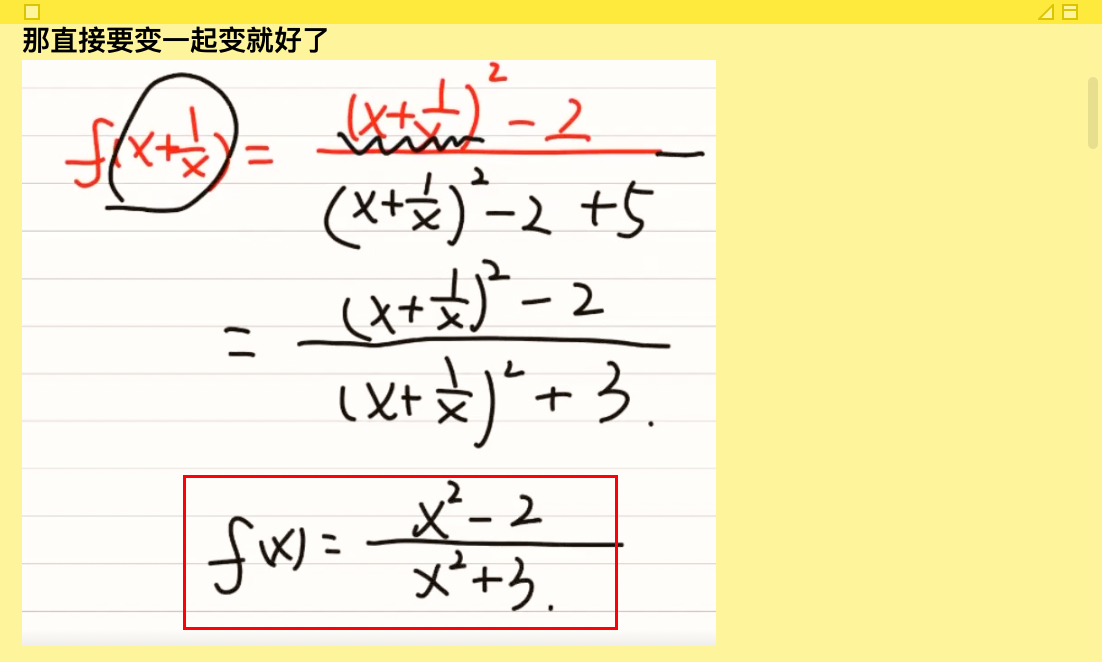 那直接要变一起变就好了
f(x+1/x) = ((x+1/x)² - 2) / ((x+1/x)² - 2 + 5)
= ((x+1/x)² - 2) / ((x+1/x)² + 3).
f(x) = (x² - 2) / (x² + 3).